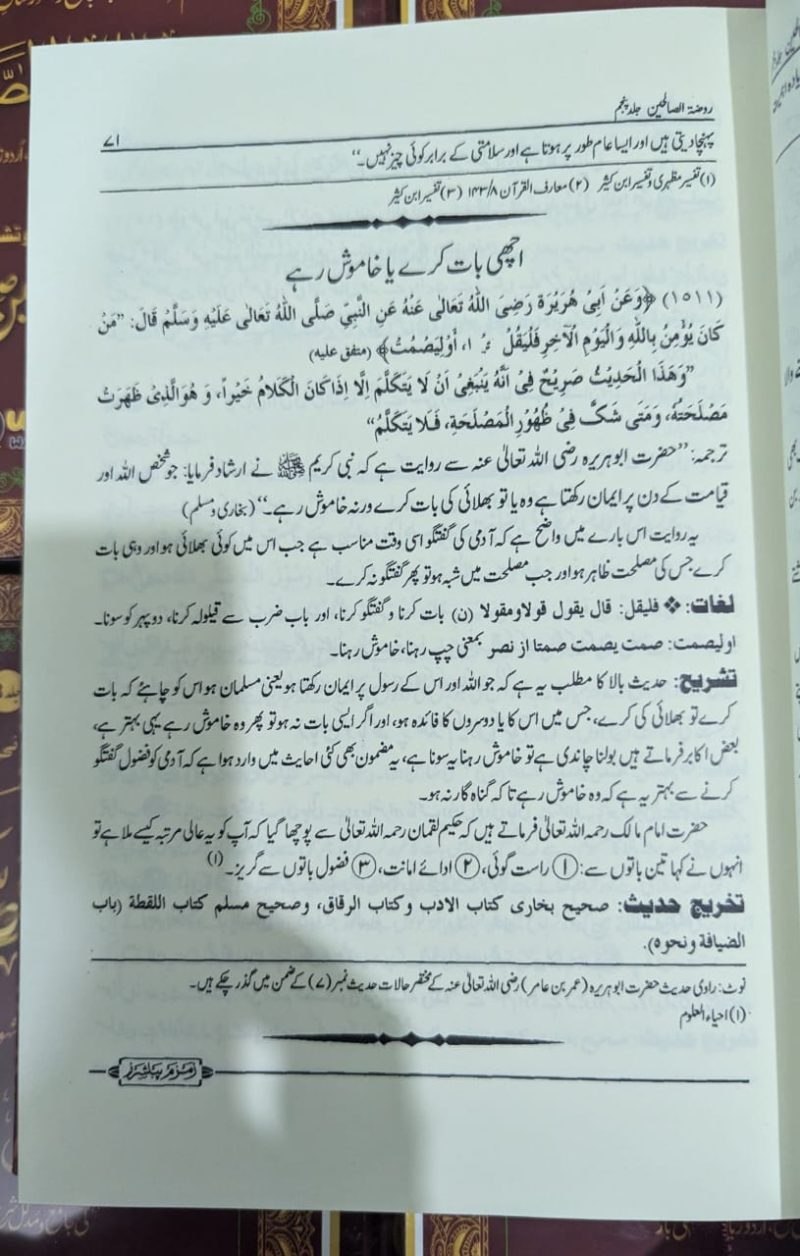 روضۃ الصالحین جلد پنجم
۷۱
پہنچا دیتی ہیں اور ایسا عام طور پر ہوتا ہے اور سلامتی کے برابر کوئی چیز نہیں۔“
(۱) تفسیر مظہری و تفسیر ابن کثیر (۲) معارف القرآن ۱۴۳/۸ (۳) تفسیر ابن کثیر
اچھی بات کرے یا خاموش رہے
(۱۵۱۱) ﴿وَعَنْ اَبِیْ هُرَیْرَةَ رَضِیَ اللّٰهُ تَعَالٰی عَنْهُ عَنِ النَّبِیِّ صَلَّی اللّٰهُ تَعَالٰی عَلَیْهِ وَسَلَّمَ قَالَ: ”مَنْ
کَانَ یُؤْمِنُ بِاللّٰهِ وَالْیَوْمِ الْآخِرِ فَلْیَقُلْ اَوْلِیَصْمُتْ﴾ (متفق علیه)
”وَهٰذَا الْحَدِیْثُ صَرِیْحٌ فِیْ اَنَّهٗ یَنْبَغِیْ اَنْ لَا یَتَکَلَّمَ اِلَّا اِذَا کَانَ الْکَلَامُ خَیْراً، وَ هُوَ الَّذِیْ ظَهَرَتْ
مَصْلَحَتُهٗ، وَمَتٰی شَکَّ فِیْ ظُهُوْرِ الْمَصْلَحَةِ، فَلَا یَتَکَلَّمُ“
ترجمہ: ”حضرت ابو ہریرہ رضی اللہ تعالیٰ عنہ سے روایت ہے کہ نبی کریم ﷺ نے ارشاد فرمایا: جو شخص اللہ اور
قیامت کے دن پر ایمان رکھتا ہے وہ یا تو بھلائی کی بات کرے ورنہ خاموش رہے۔“ (بخاری و مسلم)
یہ روایت اس بارے میں واضح ہے کہ آدمی کی گفتگو اسی وقت مناسب ہے جب اس میں کوئی بھلائی ہو اور وہی بات
کرے جس کی مصلحت ظاہر ہو اور جب مصلحت میں شبہ ہو تو پھر گفتگو نہ کرے۔
لغات: ❖ فلیقل: قال یقول قولا ومقولا (ن) بات کرنا و گفتگو کرنا، اور باب ضرب سے قیلولہ کرنا، دوپہر کو سونا۔
اولیصمت: صمت یصمت صمتا از نصر بمعنی چپ رہنا، خاموش رہنا۔
تشریح: حدیث بالا کا مطلب یہ ہے کہ جو اللہ اور اس کے رسول پر ایمان رکھتا ہو یعنی مسلمان ہو اس کو چاہئے کہ بات
کرے تو بھلائی کی کرے، جس میں اس کا یا دوسروں کا فائدہ ہو، اور اگر ایسی بات نہ ہو تو پھر وہ خاموش رہے یہی بہتر ہے،
بعض اکابر فرماتے ہیں بولنا چاندی ہے تو خاموش رہنا یہ سونا ہے، یہ مضمون بھی کئی احایث میں وارد ہوا ہے کہ آدمی کو فضول گفتگو
کرنے سے بہتر یہ ہے کہ وہ خاموش رہے تاکہ گناہ گار نہ ہو۔
حضرت امام مالک رحمہ اللہ تعالیٰ فرماتے ہیں کہ حکیم لقمان رحمہ اللہ تعالیٰ سے پوچھا گیا کہ آپ کو یہ عالی مرتبہ کیسے ملا ہے تو
انہوں نے کہا تین باتوں سے: ① راست گوئی، ② ادائے امانت، ③ فضول باتوں سے گریز۔ (۱)
تخریج حدیث: صحیح بخاری کتاب الادب وکتاب الرقاق، وصحیح مسلم کتاب اللقطة (باب
الضیافة ونحوه).
نوٹ: راوی حدیث حضرت ابو ہریرہ (عمر بن عامر) رضی اللہ تعالیٰ عنہ کے مختصر حالات حدیث نمبر (۷) کے ضمن میں گذر چکے ہیں۔
(۱) احیاء العلوم
زمزم پبلشرز